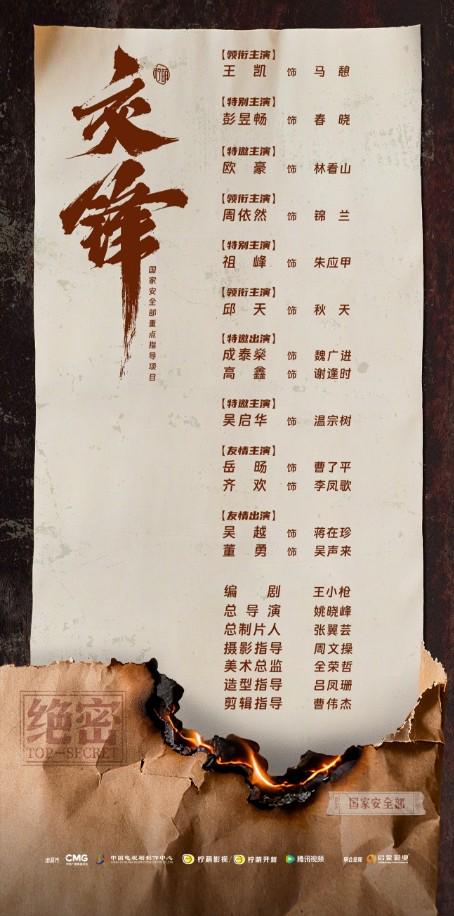 交锋
国家安全部重点指导项目
【领衔主演】
王凯 饰 马憩
【特别主演】
彭昱畅 饰 春晓
【特邀主演】
欧豪 饰 林看山
【领衔主演】
周依然 饰 锦兰
【特别主演】
祖峰 饰 朱应甲
【领衔主演】
邱天 饰 秋天
【特邀出演】
成泰燊 饰 魏广进
高鑫 饰 谢逢时
【特邀主演】
吴启华 饰 温宗树
【友情主演】
岳旸 饰 曹了平
齐欢 饰 李凤歌
【友情出演】
吴越 饰 蒋在珍
董勇 饰 吴声来
编剧 王小枪
总导演 姚晓峰
总制片人 张翼芸
摄影指导 周文操
美术总监 全荣哲
造型指导 吕凤珊
剪辑指导 曹伟杰
绝密
TOP-SECRET
国家安全部
出品方 CMG 中国电视剧制作中心 柠萌影视 柠萌开新 腾讯视频 联合出品